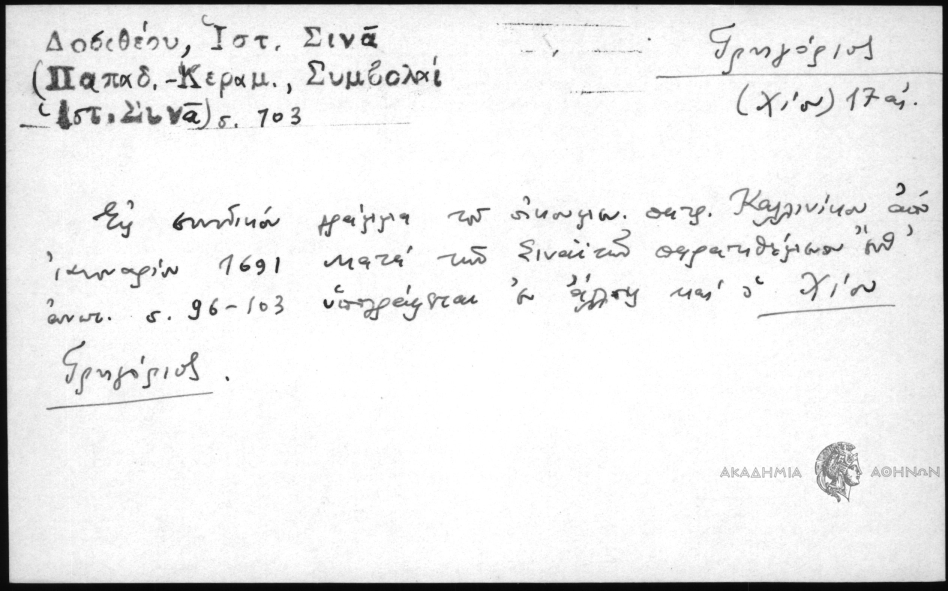 Δοσιθέου, Ἱστ. Σινᾶ
(Παπαδ.-Κεραμ., Συμβολαί
Ἱστ. Σινᾶ) σ. 103
Γρηγόριος
(Χίου) 17 αἰ.
Εἰς συνοδικόν γράμμα τοῦ οἰκουμεν. πατρ. Καλλινίκου ἀπό
ἰανουαρίου 1691 κατά τῶν Σιναϊτῶν παρατιθέμενον ἐνθ'
ἀνωτ. σ. 96-103 ὑπογράφεται ἐν ἄλλοις καί ὁ Χίου
Γρηγόριος.
ΑΚΑΔΗΜΙΑ ΑΘΗΝΩΝ